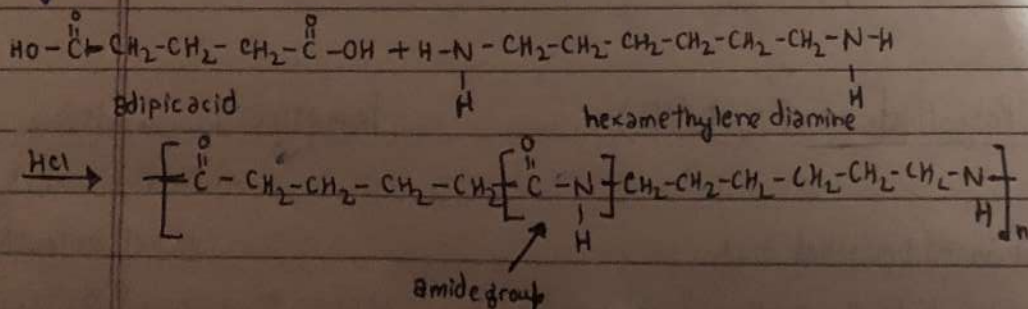 O O
HO-C-CH₂-CH₂-CH₂-C-OH + H-N-CH₂-CH₂-CH₂-CH₂-CH₂-CH₂-N-H
H H
adipic acid hexamethylene diamine
O O
HCl → [-C-CH₂-CH₂-CH₂-CH₂-[C-N]-CH₂-CH₂-CH₂-CH₂-CH₂-CH₂-N-]n
H H
amide group